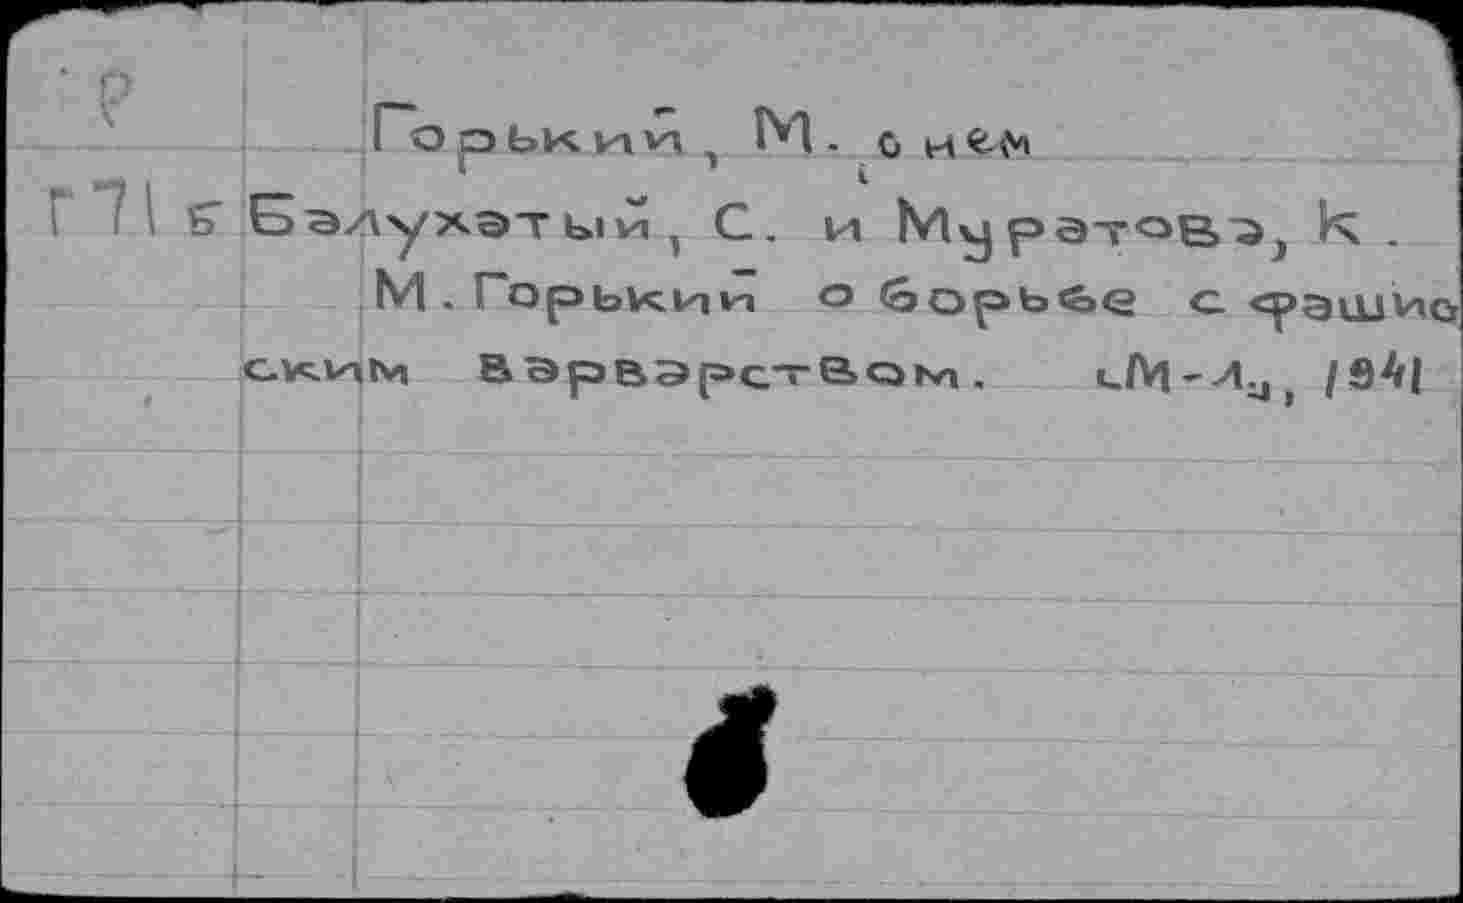 Р
Горький, М. о нем
Г71 Б Балухатый, С. и Муратова, К.
М. Горький о борьбе с фашис
ским варварством. М-Л, 1941